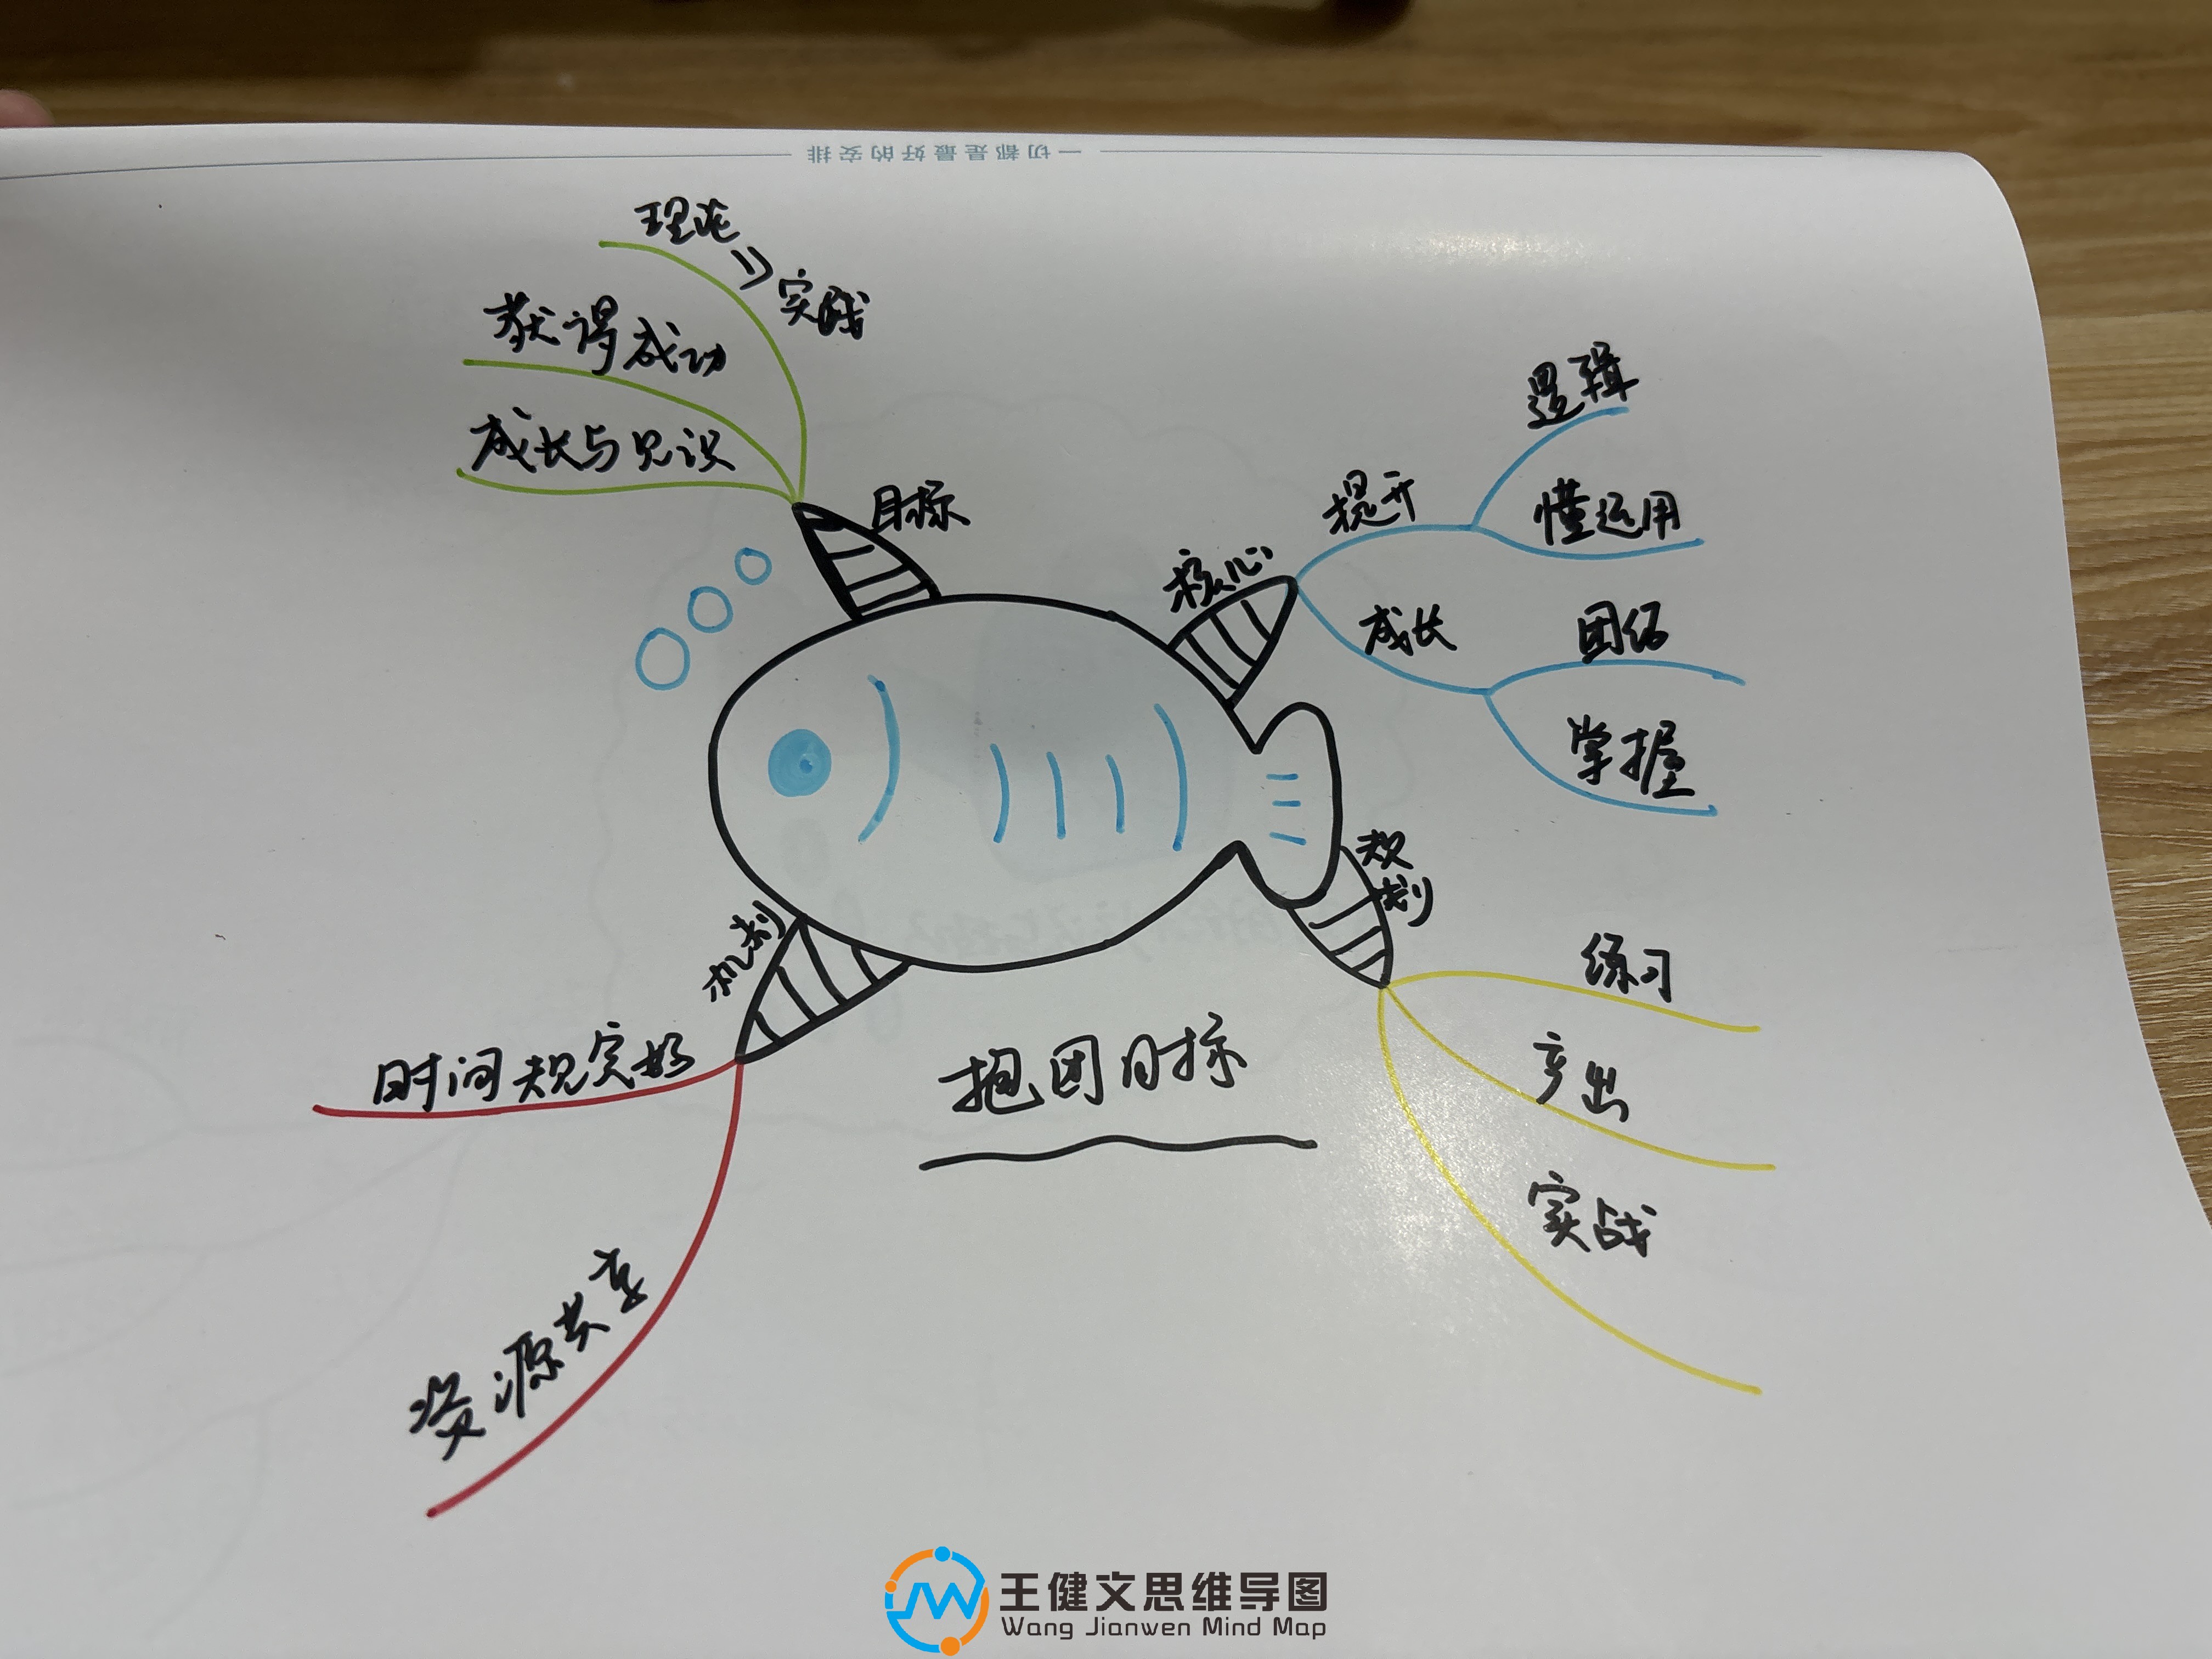 一切都是最好的安排
理论
⇒
实践
获得成功
成长与见识
目标
核心
提升
逻辑
懂运用
成长
团结
掌握
规划
练习
产出
实战
机制
时间规定好
资源共享
抱团目标
王健文思维导图
Wang Jianwen Mind Map